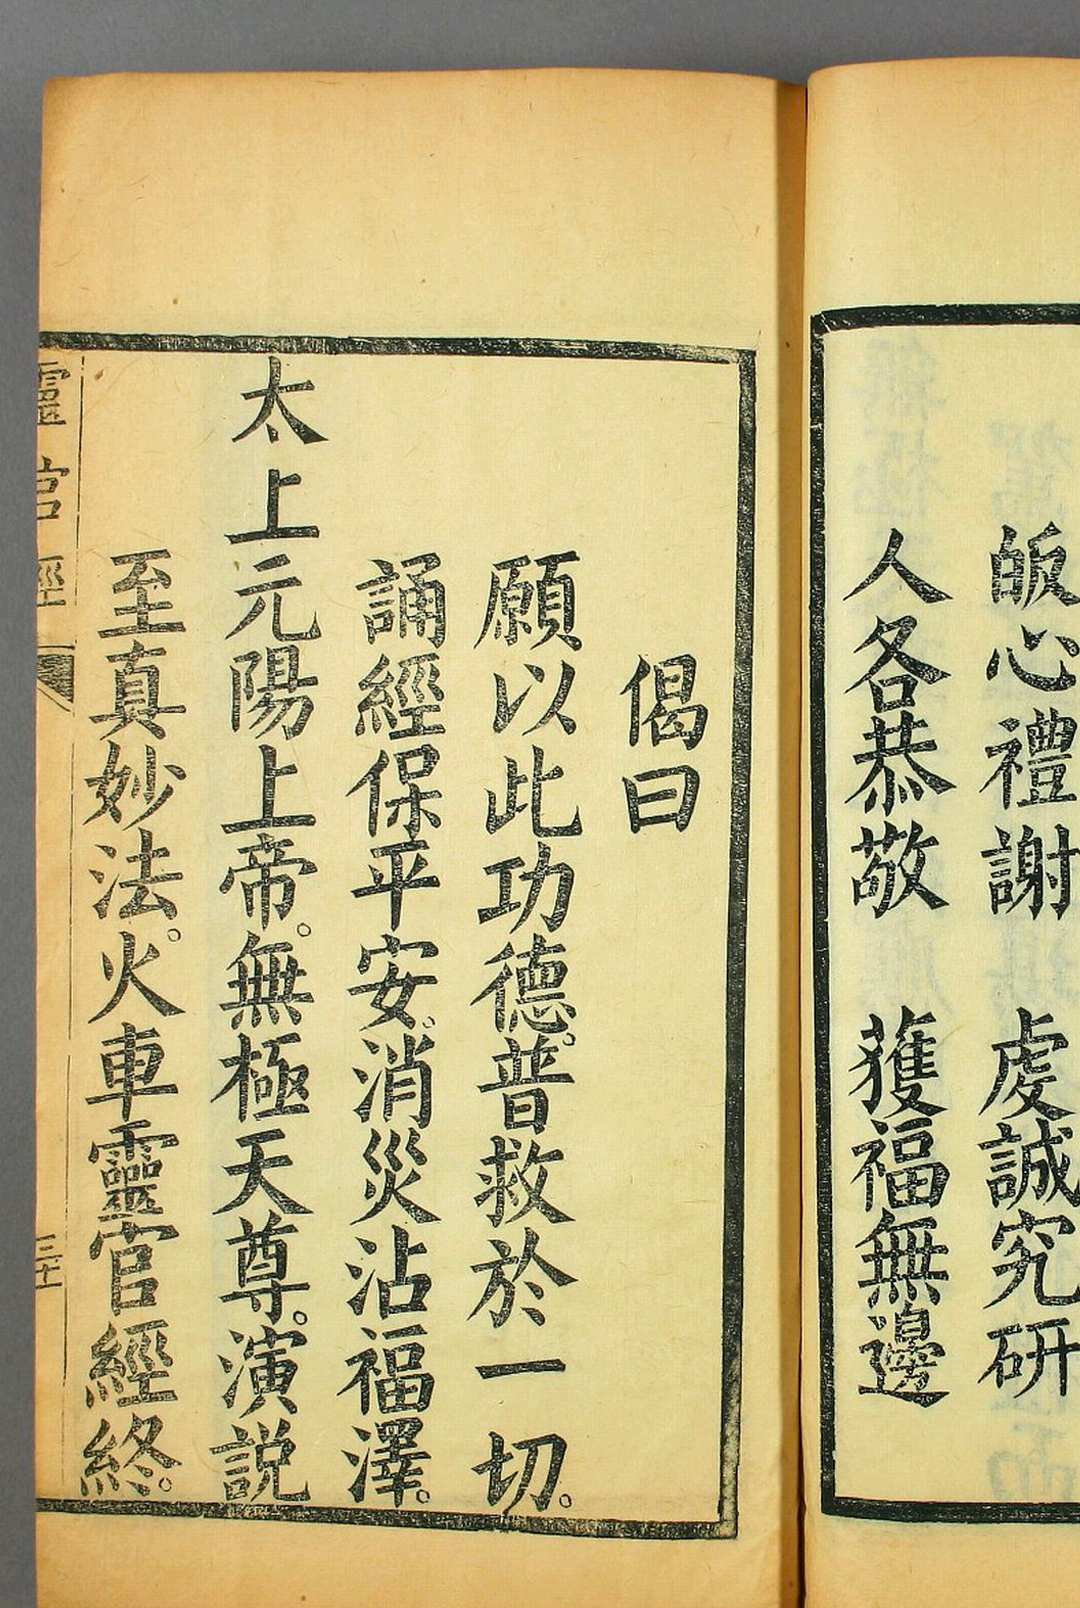 皈心禮謝　虔誠究研
人各恭敬　獲福無邊
偈曰
願以此功德。普救於一切。
誦經保平安。消災沾福澤。
太上元陽上帝。無極天尊。演説
至真妙法。火車靈官經終。
靈官經
三十